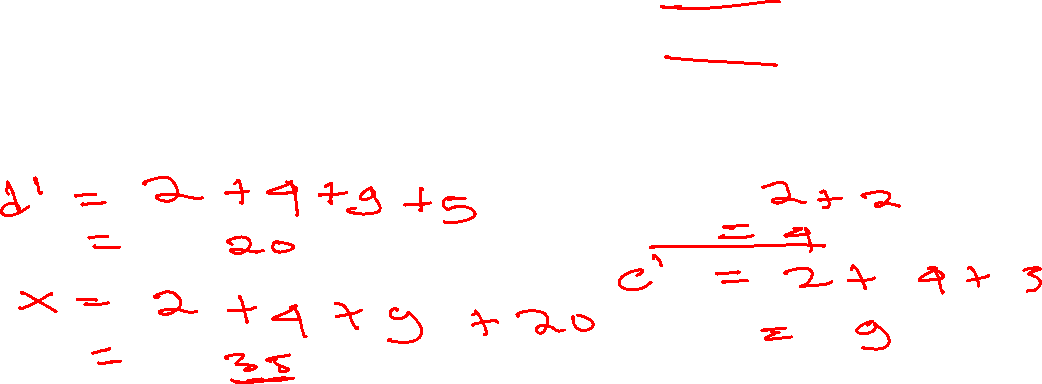 d' = 2 + 4 + 9 + 5
= 20
x = 2 + 4 + 9 + 20
= 35
2 + 2
= 4
c' = 2 + 4 + 3
= 9